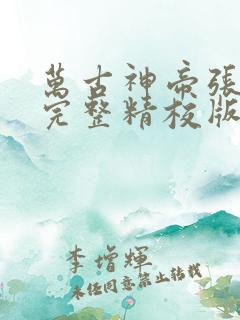 萬古神帝張
完整精校版
李增輝
未經同意禁止轉載